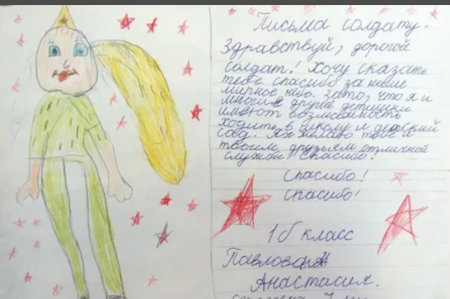 Письма солдату.
Здравствуй, дорогой
солдат! Хочу сказать
тебе спасибо за наше
мирное небо. Зато, что я и
многие другие детишки
имеют возможность
ходить в школу и детский
сад. Хочу пожелать тебе и
твоим друзьям отличной
службы! Спасибо!
Спасибо!
Спасибо!
1б класс
Павловая
Анастасия.